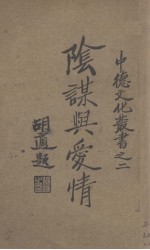 中德文化叢書之二
陰謀與愛情
胡適題